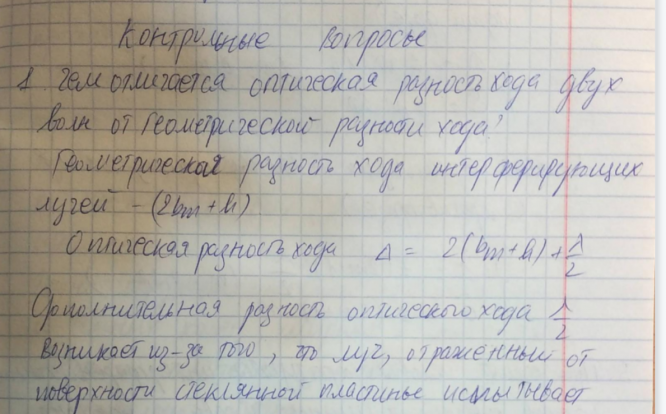 Контрольные вопросы
1 Чем отличается оптическая разность хода двух
волн от геометрической разности хода?
Геометрическая разность хода интерферирующих
лучей - (2bm+h)
Оптическая разность хода Δ = 2(bm+h)+λ/2
Дополнительная разность оптического хода λ/2
возникает из-за того, что луч, отраженный от
поверхности стеклянной пластинье испытывает